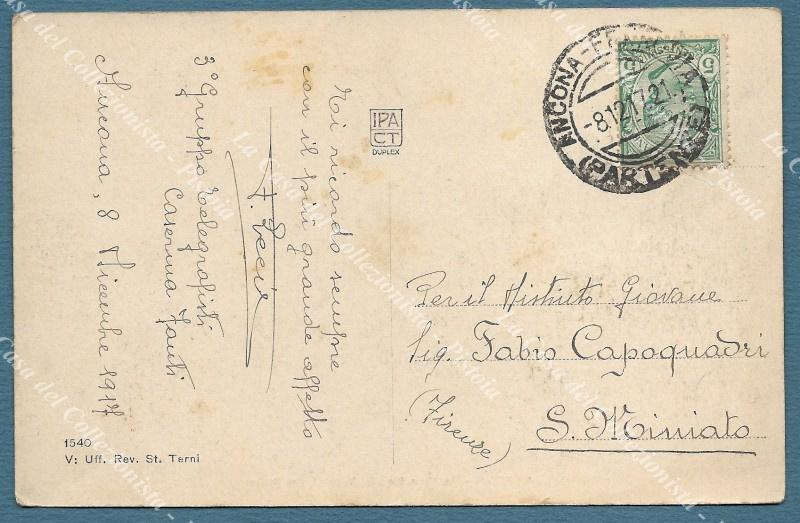 Ti ricordo sempre
con il più grande affetto
3° Gruppo Telegrafisti
Caserma Fanti
Ancona, 8 Dicembre 1917
IPA
CT
DUPLEX
ANCONA-FERROVIA
-8.12.17.21
(PARTENZE)
Per il Distinto Giovane
Sig. Fabio Capoquadri
S. Miniato
(Firenze)
1540
V: Uff. Rev. St. Terni
La Casa del Collezionista - Pistoia